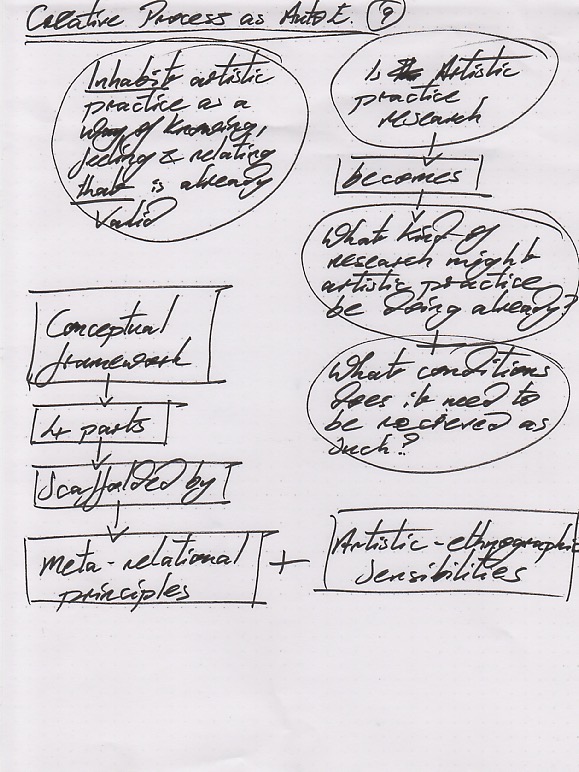 Creative Process as AutoE. 9
Inhabit artistic
practice as a
way of knowing,
feeling & relating
that is already
valid
Is Artistic
practice
research
becomes
What kind of
research might
artistic practice
be doing already?
+
What conditions
does it need to
be received as
such?
Conceptual
framework
4 parts
Scaffolded by
Meta-relational
principles
+
Artistic-ethnographic
sensibilities